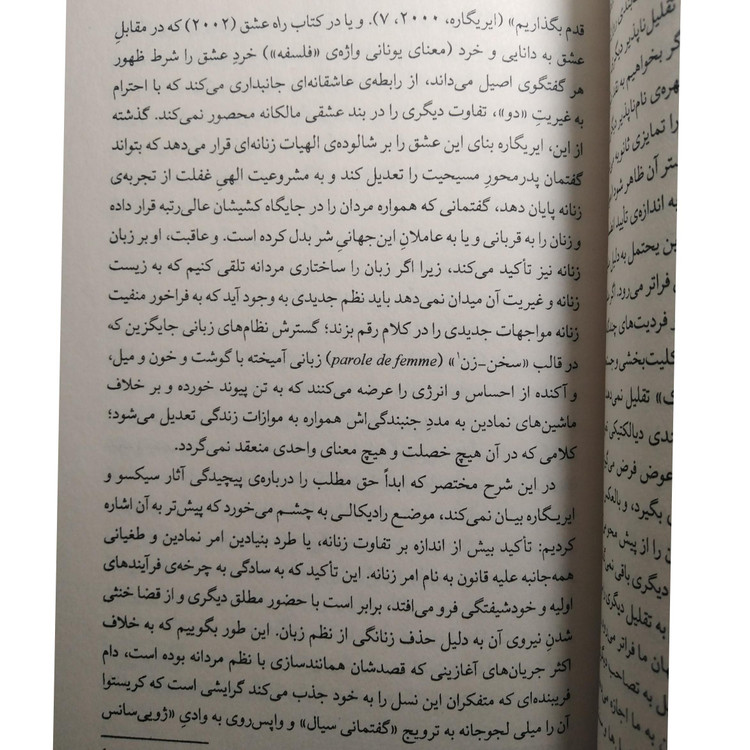 قدم بگذاریم» (ایریگاره، ۲۰۰۰، ۷). و یا در کتاب راه عشق (۲۰۰۲) که در مقابلِ
عشق به دانایی و خرد (معنای یونانی واژه‌ی «فلسفه») خردِ عشق را شرط ظهور
هر گفتگوی اصیل می‌داند، از رابطه‌ی عاشقانه‌ای جانبداری می‌کند که با احترام
به غیریتِ «دو»، تفاوت دیگری را در بند عشقی مالکانه محصور نمی‌کند. گذشته
از این، ایریگاره بنای این عشق را بر شالوده‌ی الهیات زنانه‌ای قرار می‌دهد که بتواند
گفتمان پدرمحورِ مسیحیت را تعدیل کند و به مشروعیت الهیِ غفلت از تجربه‌ی
زنانه پایان دهد، گفتمانی که همواره مردان را در جایگاه کشیشان عالی‌رتبه قرار داده
و زنان را به قربانی و یا به عاملانِ این‌جهانیِ شر بدل کرده است. و عاقبت، او بر زبان
زنانه نیز تأکید می‌کند، زیرا اگر زبان را ساختاری مردانه تلقی کنیم که به زیست
زنانه و غیریت آن میدان نمی‌دهد باید نظم جدیدی به وجود آید که به فراخور منفیت
زنانه مواجهات جدیدی را در کلام رقم بزند؛ گسترش نظام‌های زبانی جایگزین که
در قالب «سخن-زن۱» (parole de femme) زبانی آمیخته با گوشت و خون و میل،
و آکنده از احساس و انرژی را عرضه می‌کنند که به تن پیوند خورده و بر خلاف
ماشین‌های نمادین به مددِ جنبندگی‌اش همواره به موازات زندگی تعدیل می‌شود؛
کلامی که در آن هیچ خصلت و هیچ معنای واحدی منعقد نمی‌گردد.
در این شرح مختصر که ابداً حق مطلب را درباره‌ی پیچیدگی آثار سیکسو و
ایریگاره بیان نمی‌کند، موضع رادیکالی به چشم می‌خورد که پیش‌تر به آن اشاره
کردیم: تأکید بیش از اندازه بر تفاوت زنانه، یا طرد بنیادین امر نمادین و طغیانی
همه‌جانبه علیه قانون به نام امر زنانه. این تأکید که به سادگی به چرخه‌ی فرآیندهای
اولیه و خودشیفتگی فرو می‌افتد، برابر است با حضور مطلق دیگری و از قضا خنثی
شدنِ نیروی آن به دلیل حذف زنانگی از نظم زبان. این طور بگوییم که به خلاف
اکثر جریان‌های آغازینی که قصدشان همانندسازی با نظم مردانه بوده است، دام
فریبنده‌ای که متفکران این نسل را به خود جذب می‌کند گرایشی است که کریستوا
آن را میلی لجوجانه به ترویج «گفتمانی سیال» و واپس‌روی به وادیِ «ژویی‌سانس